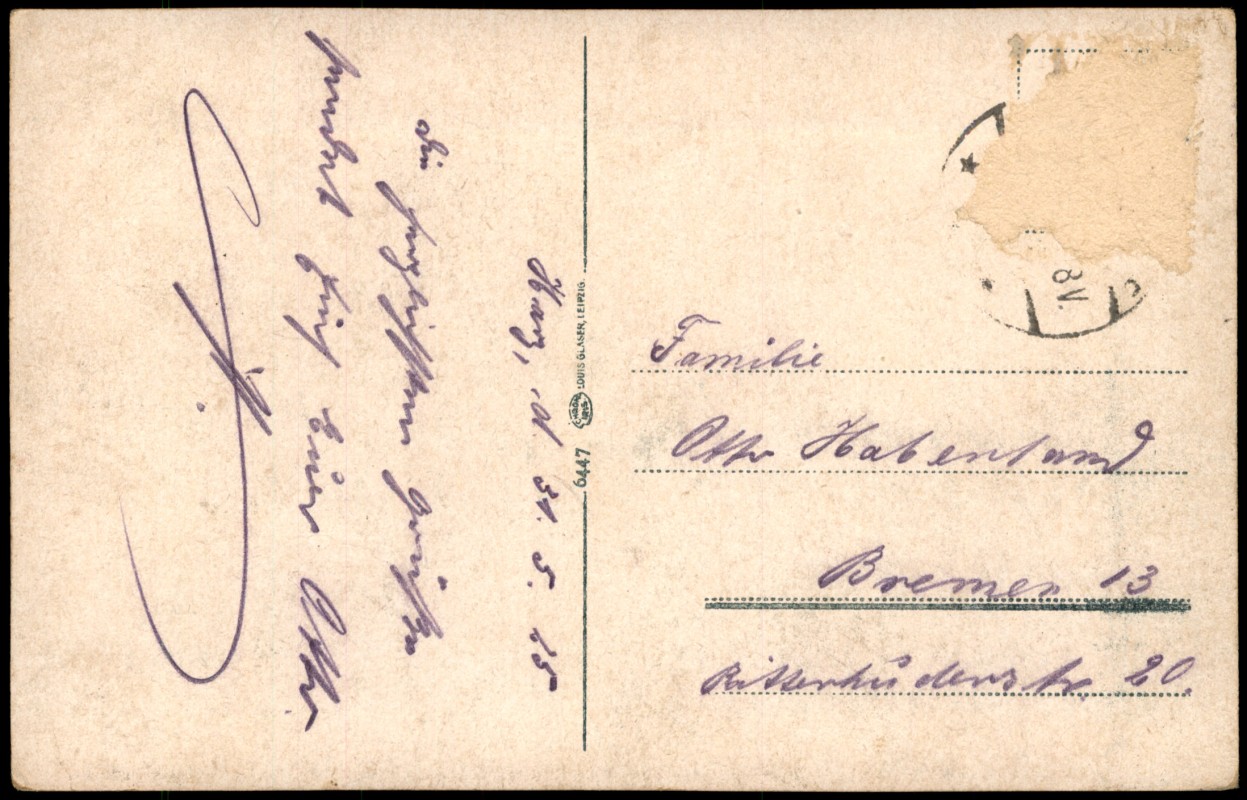 Harz, d. 31. 5. 25
die herzlichsten Grüße
sendet Euch Euer Otto.
6447
LOUIS GLASER, LEIPZIG.
8V.
Familie
Otto Habenland
Bremen 13
Ritterhuderstr. 20.